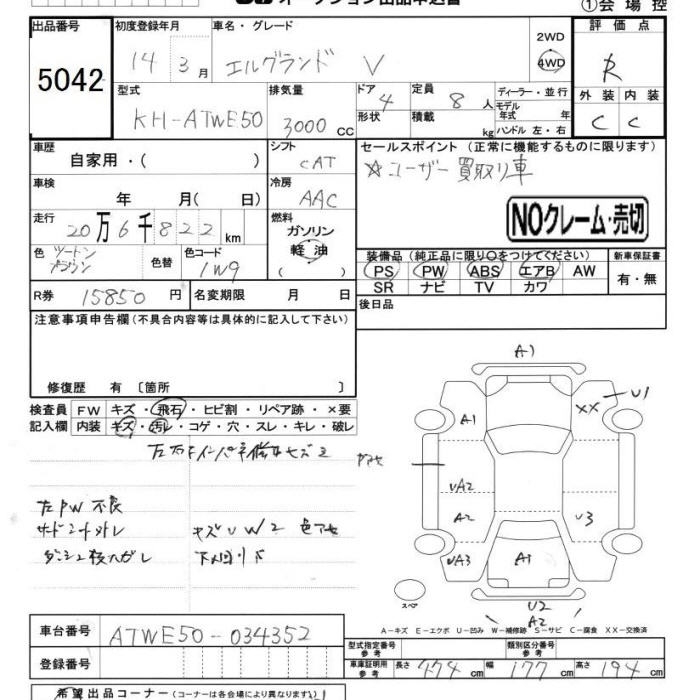 ①会場控
出品番号 5042
初度登録年月 14 3月
車名・グレード エルグランド V
2WD
4WD
評価点 R
型式 KH-ATWE50
排気量 3000 CC
ドア形状 4
定員 8人
積載 kg
ディーラー・並行
モデル年式 年
ハンドル 左・右
外装 内装
C C
車歴 自家用・( )
シフト CAT
セールスポイント (正常に機能するものに限ります)
☆ユーザー買取り車
車検 年 月( 日)
冷房 AAC
NOクレーム・売切
走行 20万6千822km
燃料 ガソリン
軽油
( )
色 ツートン
ブラウン
色替
色コード 1W9
装備品 (純正品に限り○をつけてください)
新車保証書
PS PW ABS エアB AW
有・無
SR ナビ TV カワ
R券 15850円
名変期限 月 日
後日品
注意事項申告欄(不具合内容等は具体的に記入して下さい)
修復歴 有〔箇所 〕
検査員記入欄
FW キズ・飛石・ヒビ割・リペア跡・×要
内装 キズ・汚れ・コゲ・穴・スレ・キレ・破レ
左PW不良
キズUW2 色アセ
A1
A1
XX
U1
UA2
A2
U3
UA3
A1
スペア
U2
A2
A-キズ E-エクボ U-凹み W-補修跡 S-サビ C-腐食 XX-交換済
車台番号 ATWE50-034352
登録番号
型式指定番号 参考
類別区分番号 参考
車庫証明用 参考
長さ 474cm 幅 177cm 高さ 194cm
希望出品コーナー (コーナーは各会場により異なります)